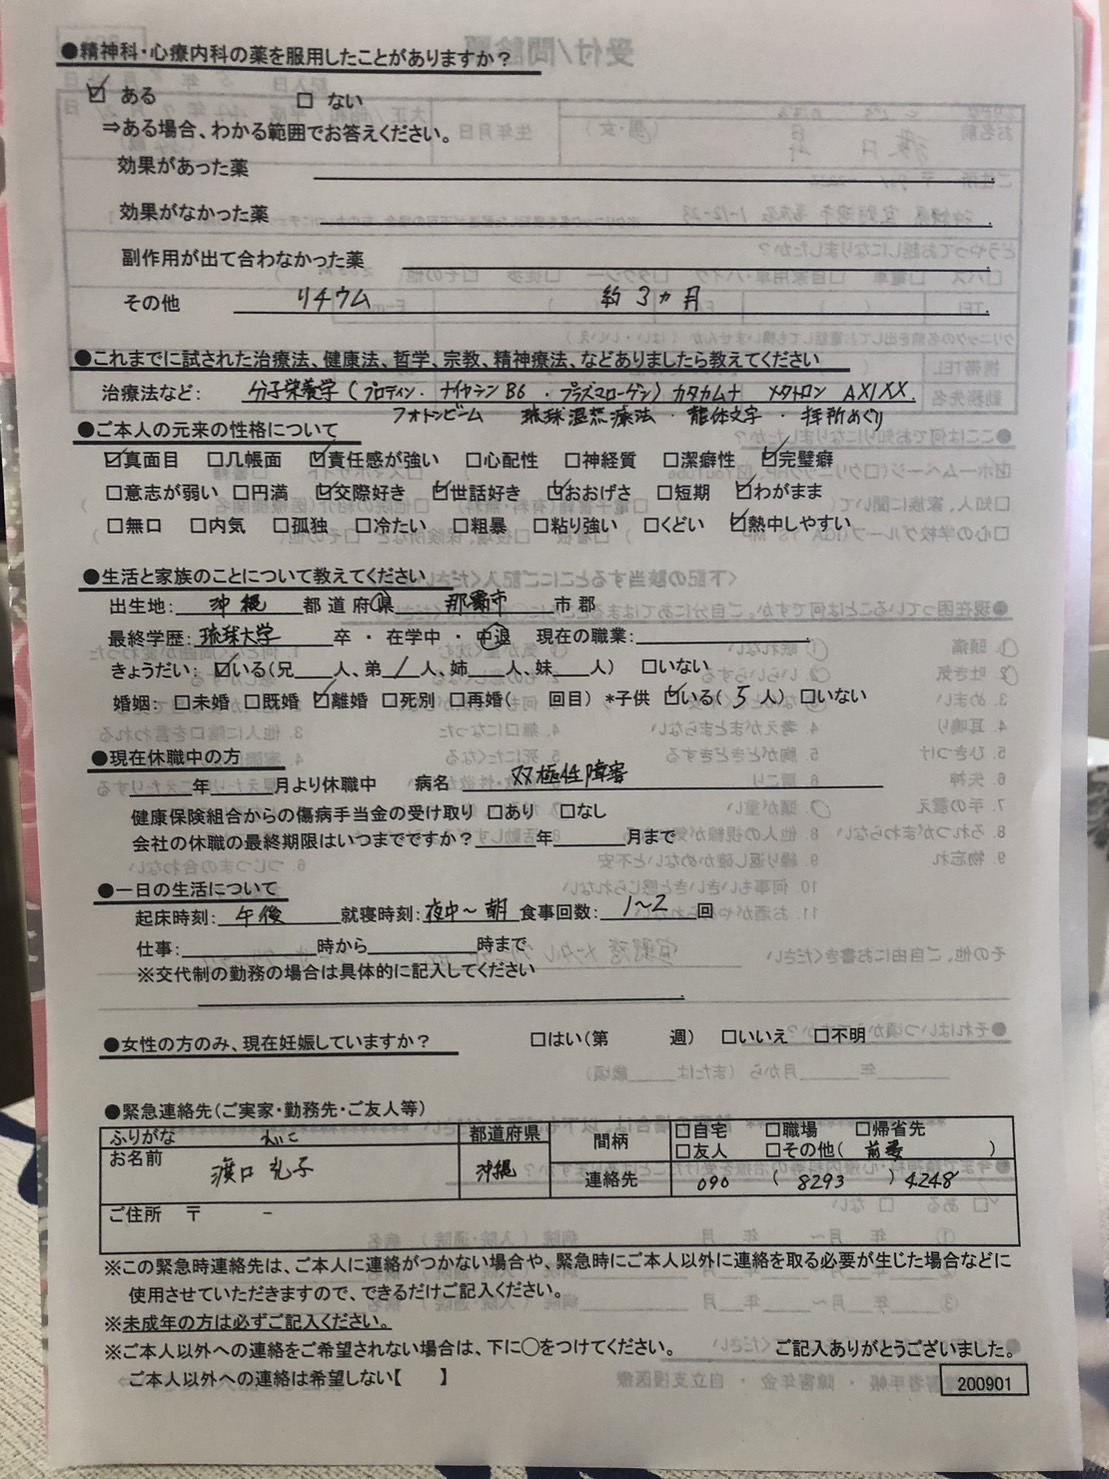 ●精神科・心療内科の薬を服用したことがありますか？
☑ ある □ ない
⇒ある場合、わかる範囲でお答えください。
効果があった薬
効果がなかった薬
副作用が出て合わなかった薬
その他 リチウム 約3ヵ月
●これまでに試された治療法、健康法、哲学、宗教、精神療法、などありましたら教えてください
治療法など: 分子栄養学(プロテイン・ナイヤシン B6・プラズマローゲン) カタカムナ メタトロン AXIXX.
フォトンビーム 琉球温熱療法・龍体文字・拝所めぐり
●ご本人の元来の性格について
☑真面目 □几帳面 ☑責任感が強い □心配性 □神経質 □潔癖性 ☑完璧癖
□意志が弱い □円満 ☑交際好き ☑世話好き ☑おおげさ □短期 ☑わがまま
□無口 □内気 □孤独 □冷たい □粗暴 □粘り強い □くどい ☑熱中しやすい
●生活と家族のことについて教えてください
出生地: 沖縄 都 道 府 県 那覇市 市 郡
最終学歴: 琉球大学 卒 ・ 在学中 ・ 中退 現在の職業:
きょうだい: ☑いる(兄 人、弟 1 人、姉 人、妹 人) □いない
婚姻: □未婚 □既婚 ☑離婚 □死別 □再婚( 回目) *子供 ☑いる( 5 人) □いない
●現在休職中の方
年 月より休職中 病名 双極性障害
健康保険組合からの傷病手当金の受け取り □あり □なし
会社の休職の最終期限はいつまでですか？ 年 月まで
●一日の生活について
起床時刻: 午後 就寝時刻: 夜中〜朝 食事回数: 1〜2 回
仕事: 時から 時まで
※交代制の勤務の場合は具体的に記入してください
●女性の方のみ、現在妊娠していますか？ □はい(第 週) □いいえ □不明
●緊急連絡先(ご実家・勤務先・ご友人等)
ふりがな 都道府県 間柄 □自宅 □職場 □帰省先
□友人 □その他( 前妻 )
お名前 渡口 礼子 沖縄 連絡先 090 ( 8293 ) 4248
ご住所 〒 −
※この緊急時連絡先は、ご本人に連絡がつかない場合や、緊急時にご本人以外に連絡を取る必要が生じた場合などに
使用させていただきますので、できるだけご記入ください。
※未成年の方は必ずご記入ください。
※ご本人以外への連絡をご希望されない場合は、下に〇をつけてください。 ご記入ありがとうございました。
ご本人以外への連絡は希望しない【 】
200901